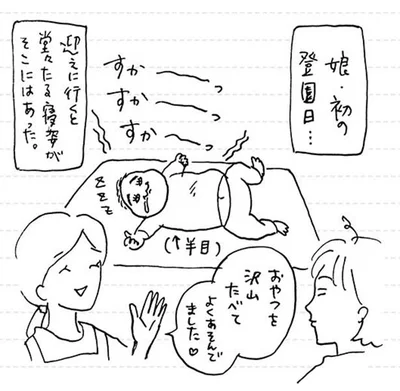 娘・初の
登園日…
すかーーっ
すかーーっ
すかーーっ
迎えに行くと
堂々たる寝姿が
そこにはあった。
zzzz
(↑半目)
おやつを
沢山
たべて
よくあそんで
ました♡